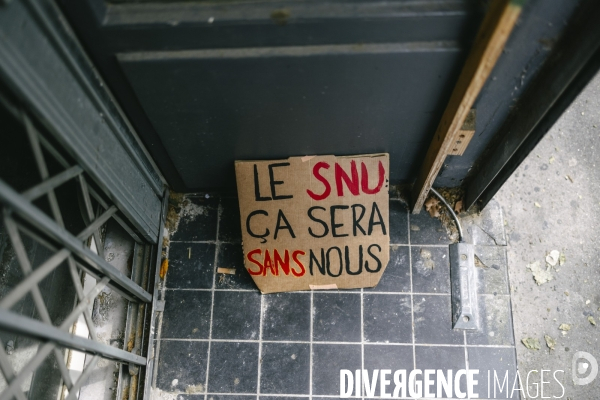 LE SNU
ÇA SERA
SANS NOUS
DIVERGENCE IMAGES